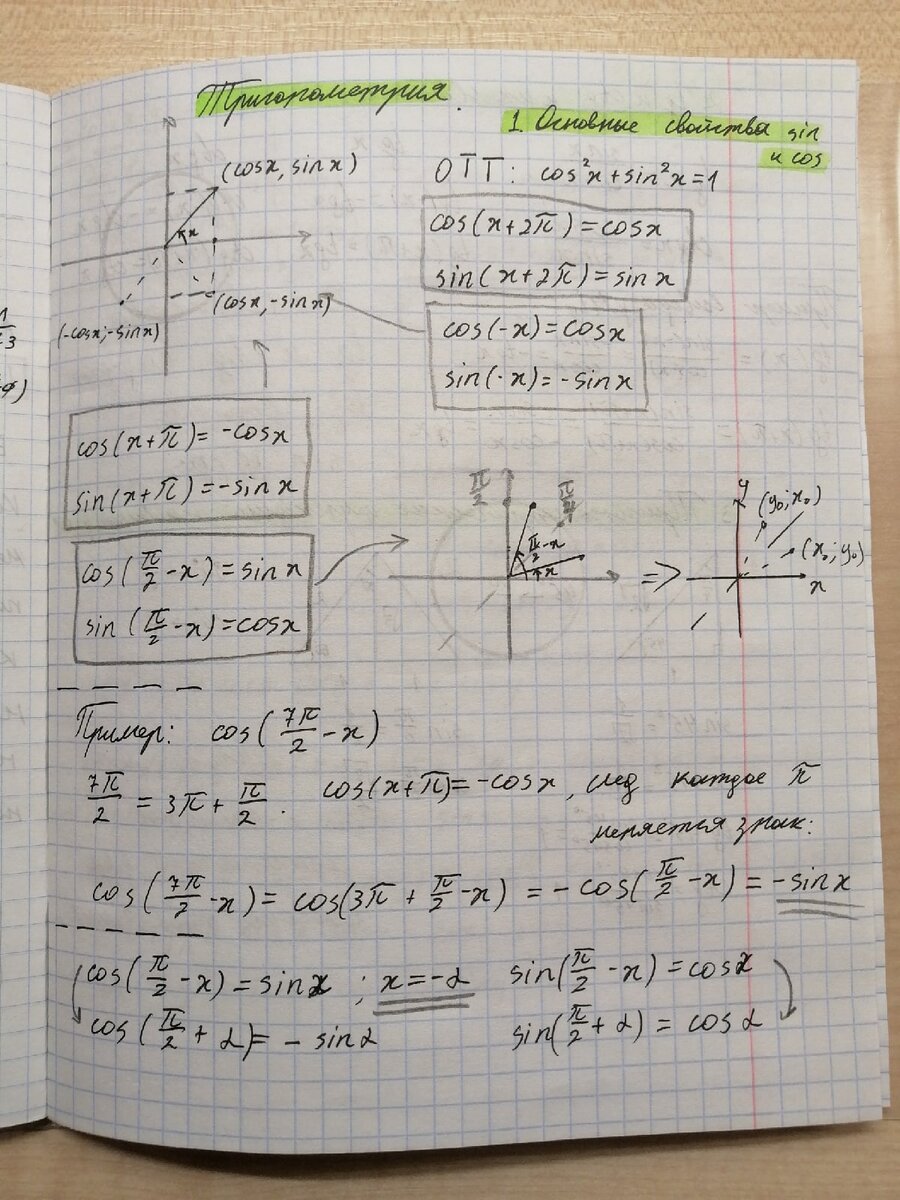 Тригонометрия.
1. Основные свойства sin
и cos
(cosx, sinx)
x
(cosx, -sinx)
(-cosx; -sinx)
ОТТ: cos²x + sin²x = 1
cos(x+2π) = cosx
sin(x+2π) = sinx
cos(-x) = cosx
sin(-x) = -sinx
cos(x+π) = -cosx
sin(x+π) = -sinx
cos(π/2 - x) = sinx
sin(π/2 - x) = cosx
π/2
π/2 - x
x
=>
y
(y₀; x₀)
(x₀; y₀)
x
Пример: cos(7π/2 - x)
7π/2 = 3π + π/2. cos(x+π) = -cosx, след каждое π
меняется знак:
cos(7π/2 - x) = cos(3π + π/2 - x) = -cos(π/2 - x) = -sinx
cos(π/2 - x) = sinx ; x = -α sin(π/2 - x) = cosx
cos(π/2 + α) = - sinα sin(π/2 + α) = cosα